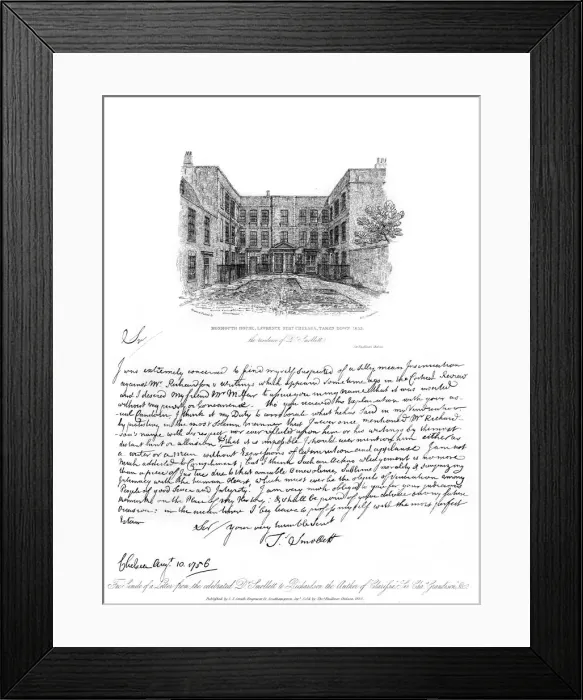 MONMOUTH HOUSE, LAURENCE STRT CHELSEA, TAKEN DOWN 1835.
the residence of Dr. Smollett.
Sir
I was extremely concerned to find myself suspected of a silly, mean Insinuation
against Mr. Richardson's Writings which appeared some time ago in the Critical Review
and I desired my friend Mr. Millar to assure you in my name that it was inserted
without my privity or Concurrence.
you received the Explanation with your us-
ual Candour, I think it my Duty to
in the most solemn manner that I never once mentioned Mr. Richard-
son's name with disrespect nor ever reflected upon him or his writings by the most
distant hint or allusion & that it is impossible I should ever mention him either as
a writer or a man without Expressions of Esteem and applause. I am not
much addicted to Compliment, but I think such an Acknowledgement is no more
than a piece of Justice due to that amiable Benevolence, sublime morality & surprizing
Intimacy with the human Heart, which must ever be the objects of Veneration among
People of good Sense and Integrity. I am very much obliged to you for your judicious
remarks on the Plan of my History, & shall be proud of your advice on any future
Occasion: in the mean time I beg leave to profess myself with the most perfect
Esteem
Sir your very humble Servt
Ts. Smollett
Chelsea Augt. 10. 1756
Fac Simile of a Letter from the celebrated Dr. Smollett to Richardson the Author of Clarissa, Sir Chas. Grandison, &c.
Published by C. J. Smith